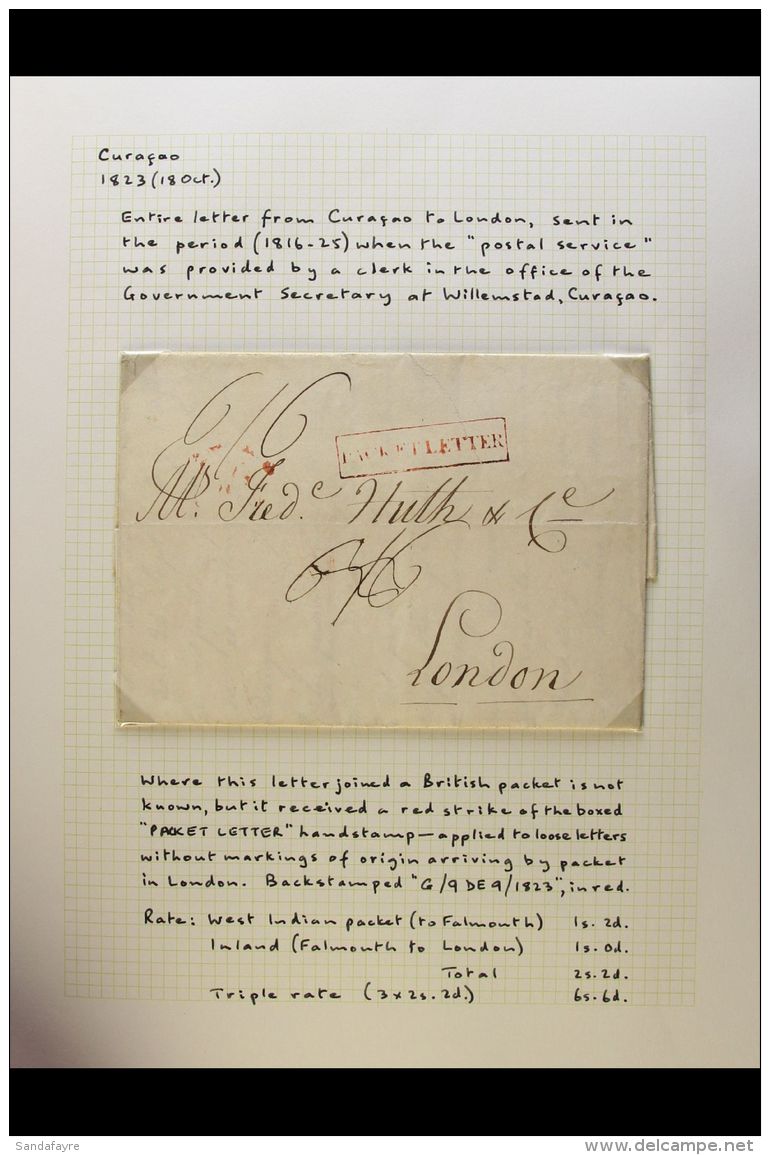 Curaçao
1823 (18 Oct.)
Entire letter from Curaçao to London, sent in
the period (1816-25) when the "postal service"
was provided by a clerk in the office of the
Government Secretary at Willemstad, Curaçao.
6/6
PACKET LETTER
Mr. Fredc. Huth & Ce
6/6
London
Where this letter joined a British packet is not
known, but it received a red strike of the boxed
"PACKET LETTER" handstamp—applied to loose letters
without markings of origin arriving by packet
in London. Backstamped "G/9 DE 9/1823", in red.
Rate: West Indian packet (to Falmouth) 1s. 2d.
Inland (Falmouth to London) 1s. 0d.
Total 2s. 2d.
Triple rate (3 x 2s. 2d.) 6s. 6d.
Sandafayre
www.delcampe.net